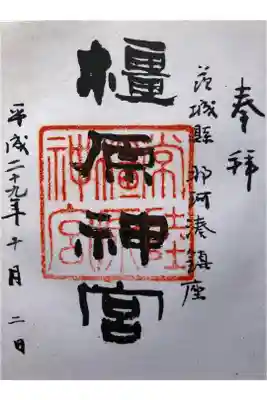 奉拝
茨城縣 那珂湊鎮座
橿原神宮
常陸
橿原
神宮
平成二十九年十月二日